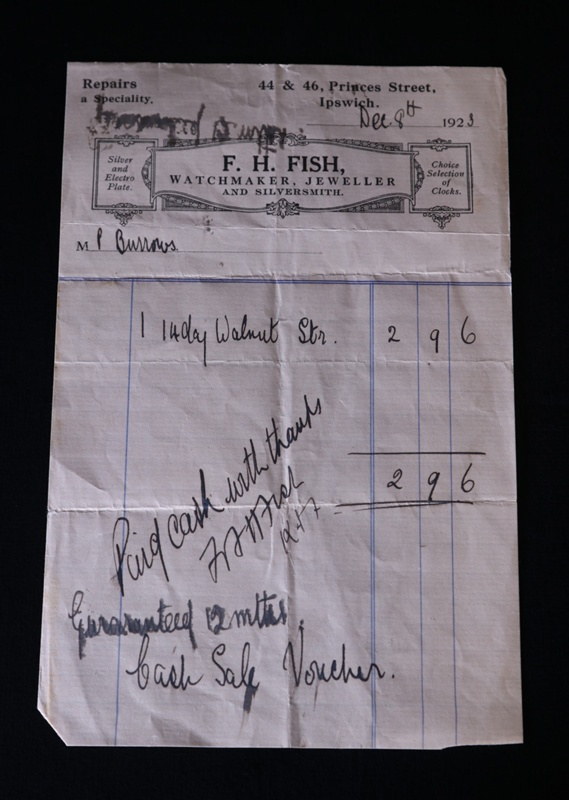 Repairs
a Speciality.
44 & 46, Princes Street,
Ipswich.
Dec. 8th 1923
Silver
and
Electro
Plate.
F. H. FISH,
WATCHMAKER, JEWELLER
AND SILVERSMITH.
Choice
Selection
of
Clocks.
M P Burrows
1 14day Walnut Str. 2 9 6
2 9 6
Paid Cash with thanks
F H Fish
Guaranteed 12 mths.
Cash Sale Voucher.